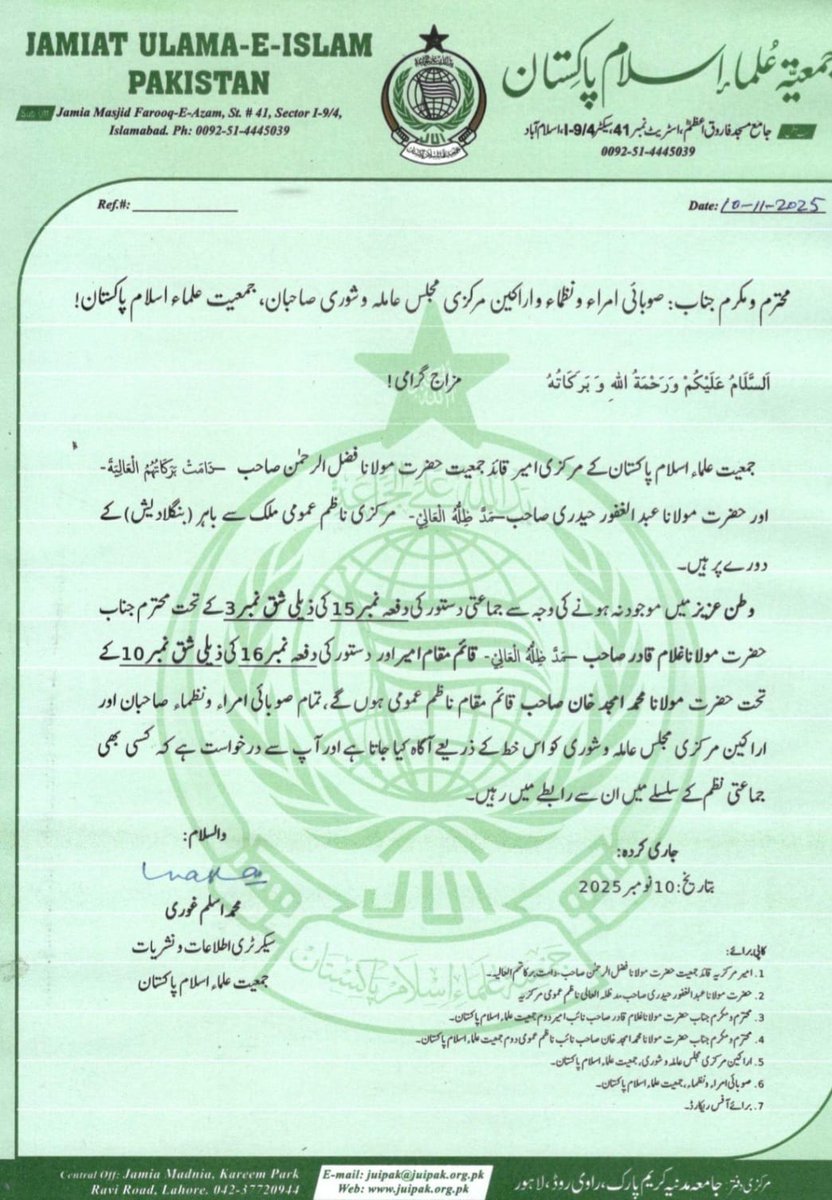 JAMIAT ULAMA-E-ISLAM
PAKISTAN
Sub Off: Jamia Masjid Farooq-E-Azam, St. # 41, Sector I-9/4,
Islamabad. Ph: 0092-51-4445039
جمعیۃ علماء اسلام پاکستان
جامع مسجد فاروق اعظمؓ، اسٹریٹ نمبر 41، سیکٹر I-9/4، اسلام آباد
0092-51-4445039
Ref.#:
Date: 10-11-2025
محترم و مکرم جناب: صوبائی امراء و نظماء و اراکین مرکزی مجلس عاملہ و شوریٰ صاحبان، جمعیت علماء اسلام پاکستان!
اَلسَّلَامُ عَلَيْكُمْ وَرَحْمَةُ اللهِ وَ بَرَكَاتُهُ مزاج گرامی!
جمعیت علماء اسلام پاکستان کے مرکزی امیر قائد جمعیت حضرت مولانا فضل الرحمٰن صاحب -دَامَتْ بَرَكَاتُهُمُ الْعَالِيَةَ-
اور حضرت مولانا عبد الغفور حیدری صاحب -مَدَّ ظِلُّهُ الْعَالِيْ- مرکزی ناظم عمومی ملک سے باہر (بنگلادیش) کے
دورے پر ہیں۔
وطن عزیز میں موجود نہ ہونے کی وجہ سے جماعتی دستور کی دفعہ نمبر 15 کی ذیلی شق نمبر 3 کے تحت محترم جناب
حضرت مولانا غلام قادر صاحب -مَدَّ ظِلُّهُ الْعَالِيْ- قائم مقام امیر اور دستور کی دفعہ نمبر 16 کی ذیلی شق نمبر 10 کے
تحت حضرت مولانا محمد امجد خان صاحب قائم مقام ناظم عمومی ہوں گے، تمام صوبائی امراء و نظماء صاحبان اور
اراکین مرکزی مجلس عاملہ و شوریٰ کو اس خط کے ذریعے آگاہ کیا جاتا ہے اور آپ سے درخواست ہے کہ کسی بھی
جماعتی نظم کے سلسلے میں ان سے رابطے میں رہیں۔
والسلام:
محمد اسلم غوری
سیکرٹری اطلاعات و نشریات
جمعیت علماء اسلام پاکستان
جاری کردہ:
بتاریخ: 10 نومبر 2025
کاپی برائے:
1. امیر مرکزیہ قائد جمعیت حضرت مولانا فضل الرحمٰن صاحب دامت برکاتہم العالیہ۔
2. حضرت مولانا عبد الغفور حیدری صاحب مد ظلہ العالی ناظم عمومی مرکزیہ
3. محترم و مکرم جناب حضرت مولانا غلام قادر صاحب نائب امیر دوم جمعیت علماء اسلام پاکستان۔
4. محترم و مکرم جناب حضرت مولانا محمد امجد خان صاحب نائب ناظم عمومی دوم جمعیت علماء اسلام پاکستان۔
5. اراکین مرکزی مجلس عاملہ و شوریٰ، جمعیت علماء اسلام پاکستان۔
6. صوبائی امراء و نظماء، جمعیت علماء اسلام پاکستان۔
7. برائے آفس ریکارڈ۔
Central Off: Jamia Madnia, Kareem Park
Ravi Road, Lahore. 042-37720944
E-mail: juipak@juipak.org.pk
Web: www.juipak.org.pk
مرکزی دفتر: جامعہ مدنیہ کریم پارک، راوی روڈ، لاہور